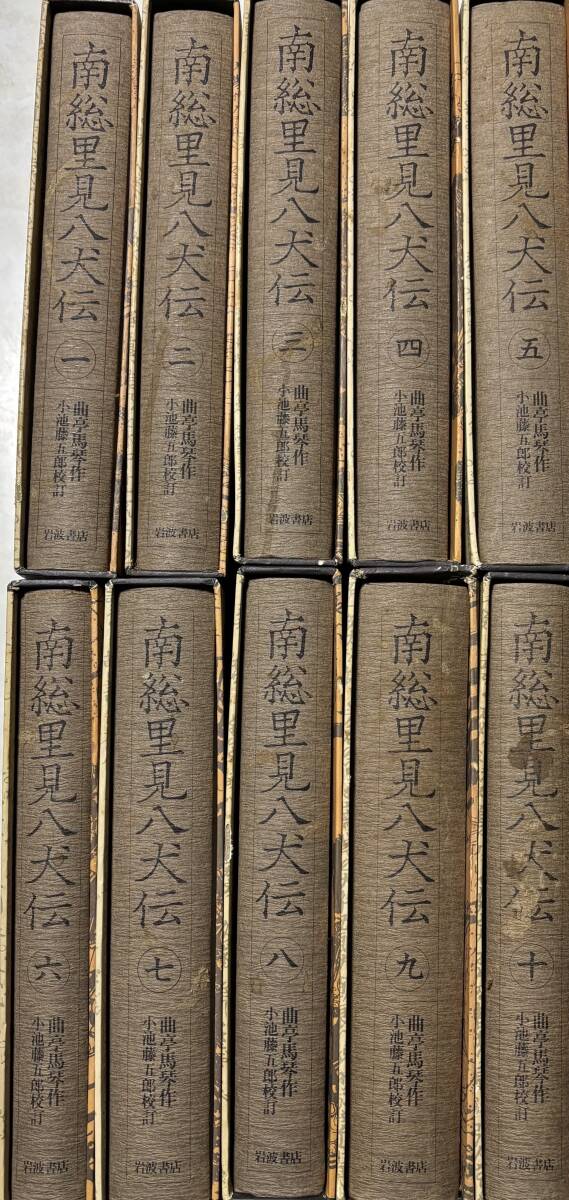 南総里見八犬伝
一
曲亭馬琴作
小池藤五郎校訂
岩波書店
南総里見八犬伝
二
曲亭馬琴作
小池藤五郎校訂
岩波書店
南総里見八犬伝
三
曲亭馬琴作
小池藤五郎校訂
岩波書店
南総里見八犬伝
四
曲亭馬琴作
小池藤五郎校訂
岩波書店
南総里見八犬伝
五
曲亭馬琴作
小池藤五郎校訂
岩波書店
南総里見八犬伝
六
曲亭馬琴作
小池藤五郎校訂
岩波書店
南総里見八犬伝
七
曲亭馬琴作
小池藤五郎校訂
岩波書店
南総里見八犬伝
八
曲亭馬琴作
小池藤五郎校訂
岩波書店
南総里見八犬伝
九
曲亭馬琴作
小池藤五郎校訂
岩波書店
南総里見八犬伝
十
曲亭馬琴作
小池藤五郎校訂
岩波書店